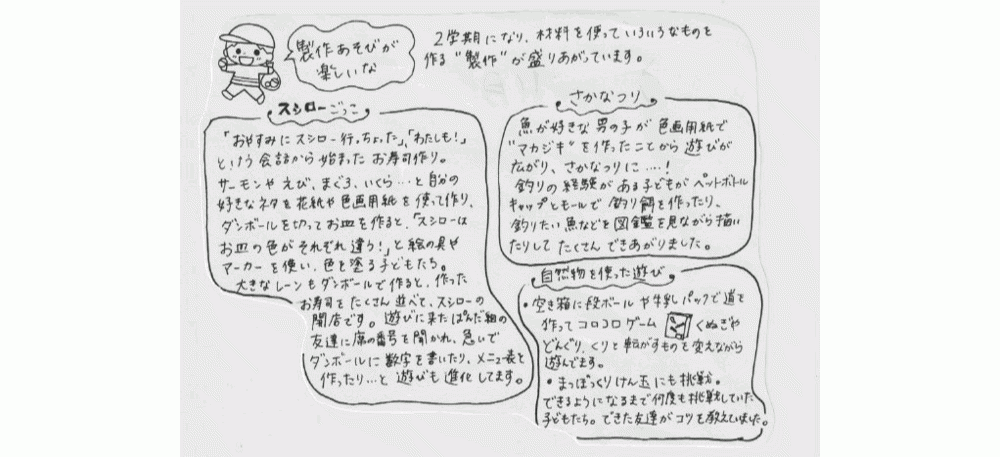 製作あそびが
楽しいな
2学期になり、材料を使っていろいろなものを
作る"製作"が盛りあがっています。
スシローごっこ
「おやすみにスシロー行っちょった」、「わたしも!」
という会話から始まったお寿司作り。
サーモンやえび、まぐろ、いくら…と自分の
好きなネタを花紙や色画用紙を使って作り、
ダンボールを切ってお皿を作ると、「スシローは
お皿の色がそれぞれ違う!」と絵の具や
マーカーを使い、色を塗る子どもたち。
大きなレーンもダンボールで作ると、作った
お寿司をたくさん並べて、スシローの
開店です。遊びに来たぱんだ組の
友達に席の番号を聞かれ、急いで
ダンボールに数字を書いたり、メニュー表を
作ったり…と遊びも進化してます。
さかなつり
魚が好きな男の子が色画用紙で
"マカジキ"を作ったことから遊びが
広がり、さかなつりに……!
釣りの経験がある子どもがペットボトル
キャップとモールで釣り餌を作ったり、
釣りたい魚などを図鑑を見ながら描い
たりしてたくさんできあがりました。
自然物を使った遊び
・空き箱に段ボールや牛乳パックで道を
作ってコロコロゲーム くぬぎや
どんぐり、くりと転がすものを変えながら
遊んでます。
・まつぼっくりけん玉にも挑戦。
できるようになるまで何度も挑戦していた
子どもたち。できた友達がコツを教えていました。